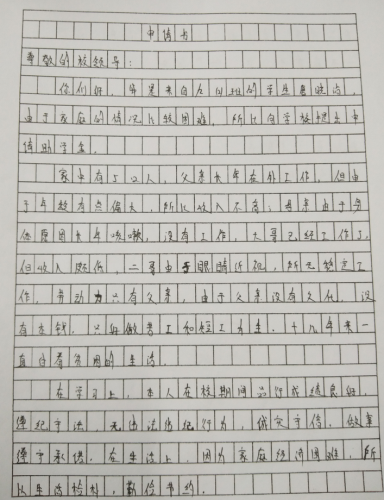 申请书
尊敬的校领导：
你们好，我是来自左 班的学生
由于家庭的情况比较困难，所以向学校提出申
请助学金。
家中有5口人，父亲长年在外工作，但由
于年龄有点偏大，所以收入不高；母亲由于身
体原因长年咳嗽，没有工作，大哥已经工作了，
但收入低，二哥由于眼睛近视，所无稳定工
作，劳动力只有父亲，由于父亲没有文化，没
有本钱，只好做苦工和短工为生，十几年来一
直过着贫困的生活。
在学习上，本人在校期间品行成绩良好，
遵纪守法，无违法违纪行为，诚实守信，做事
遵守承偌。在生活上，因为家庭经济困难，所
以生活检朴，勤俭节约。